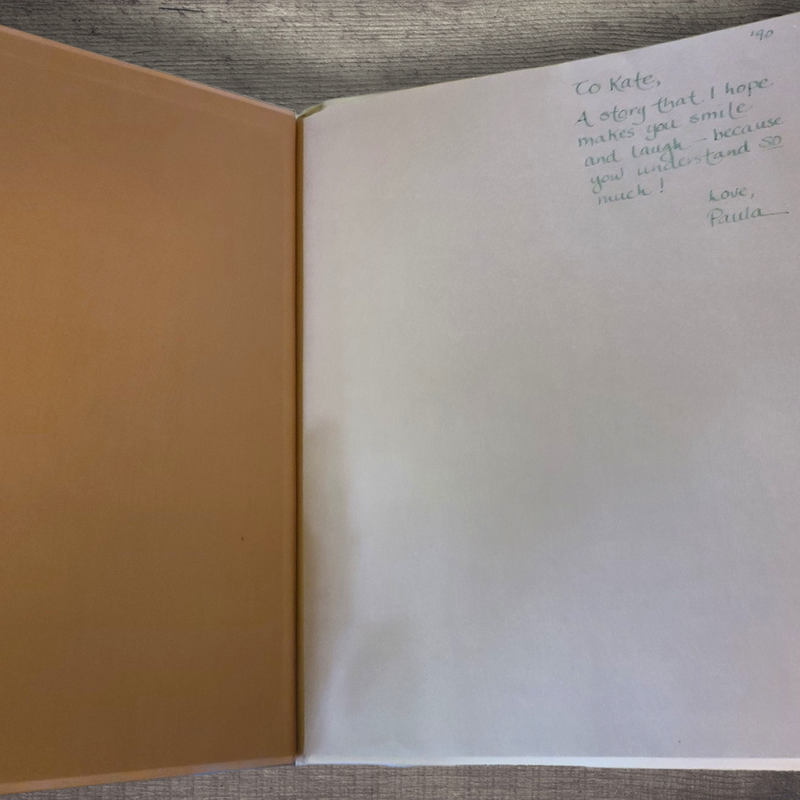 '90
To Kate,
A story that I hope
makes you smile
and laugh – because
you understand so
much!
Love,
Paula